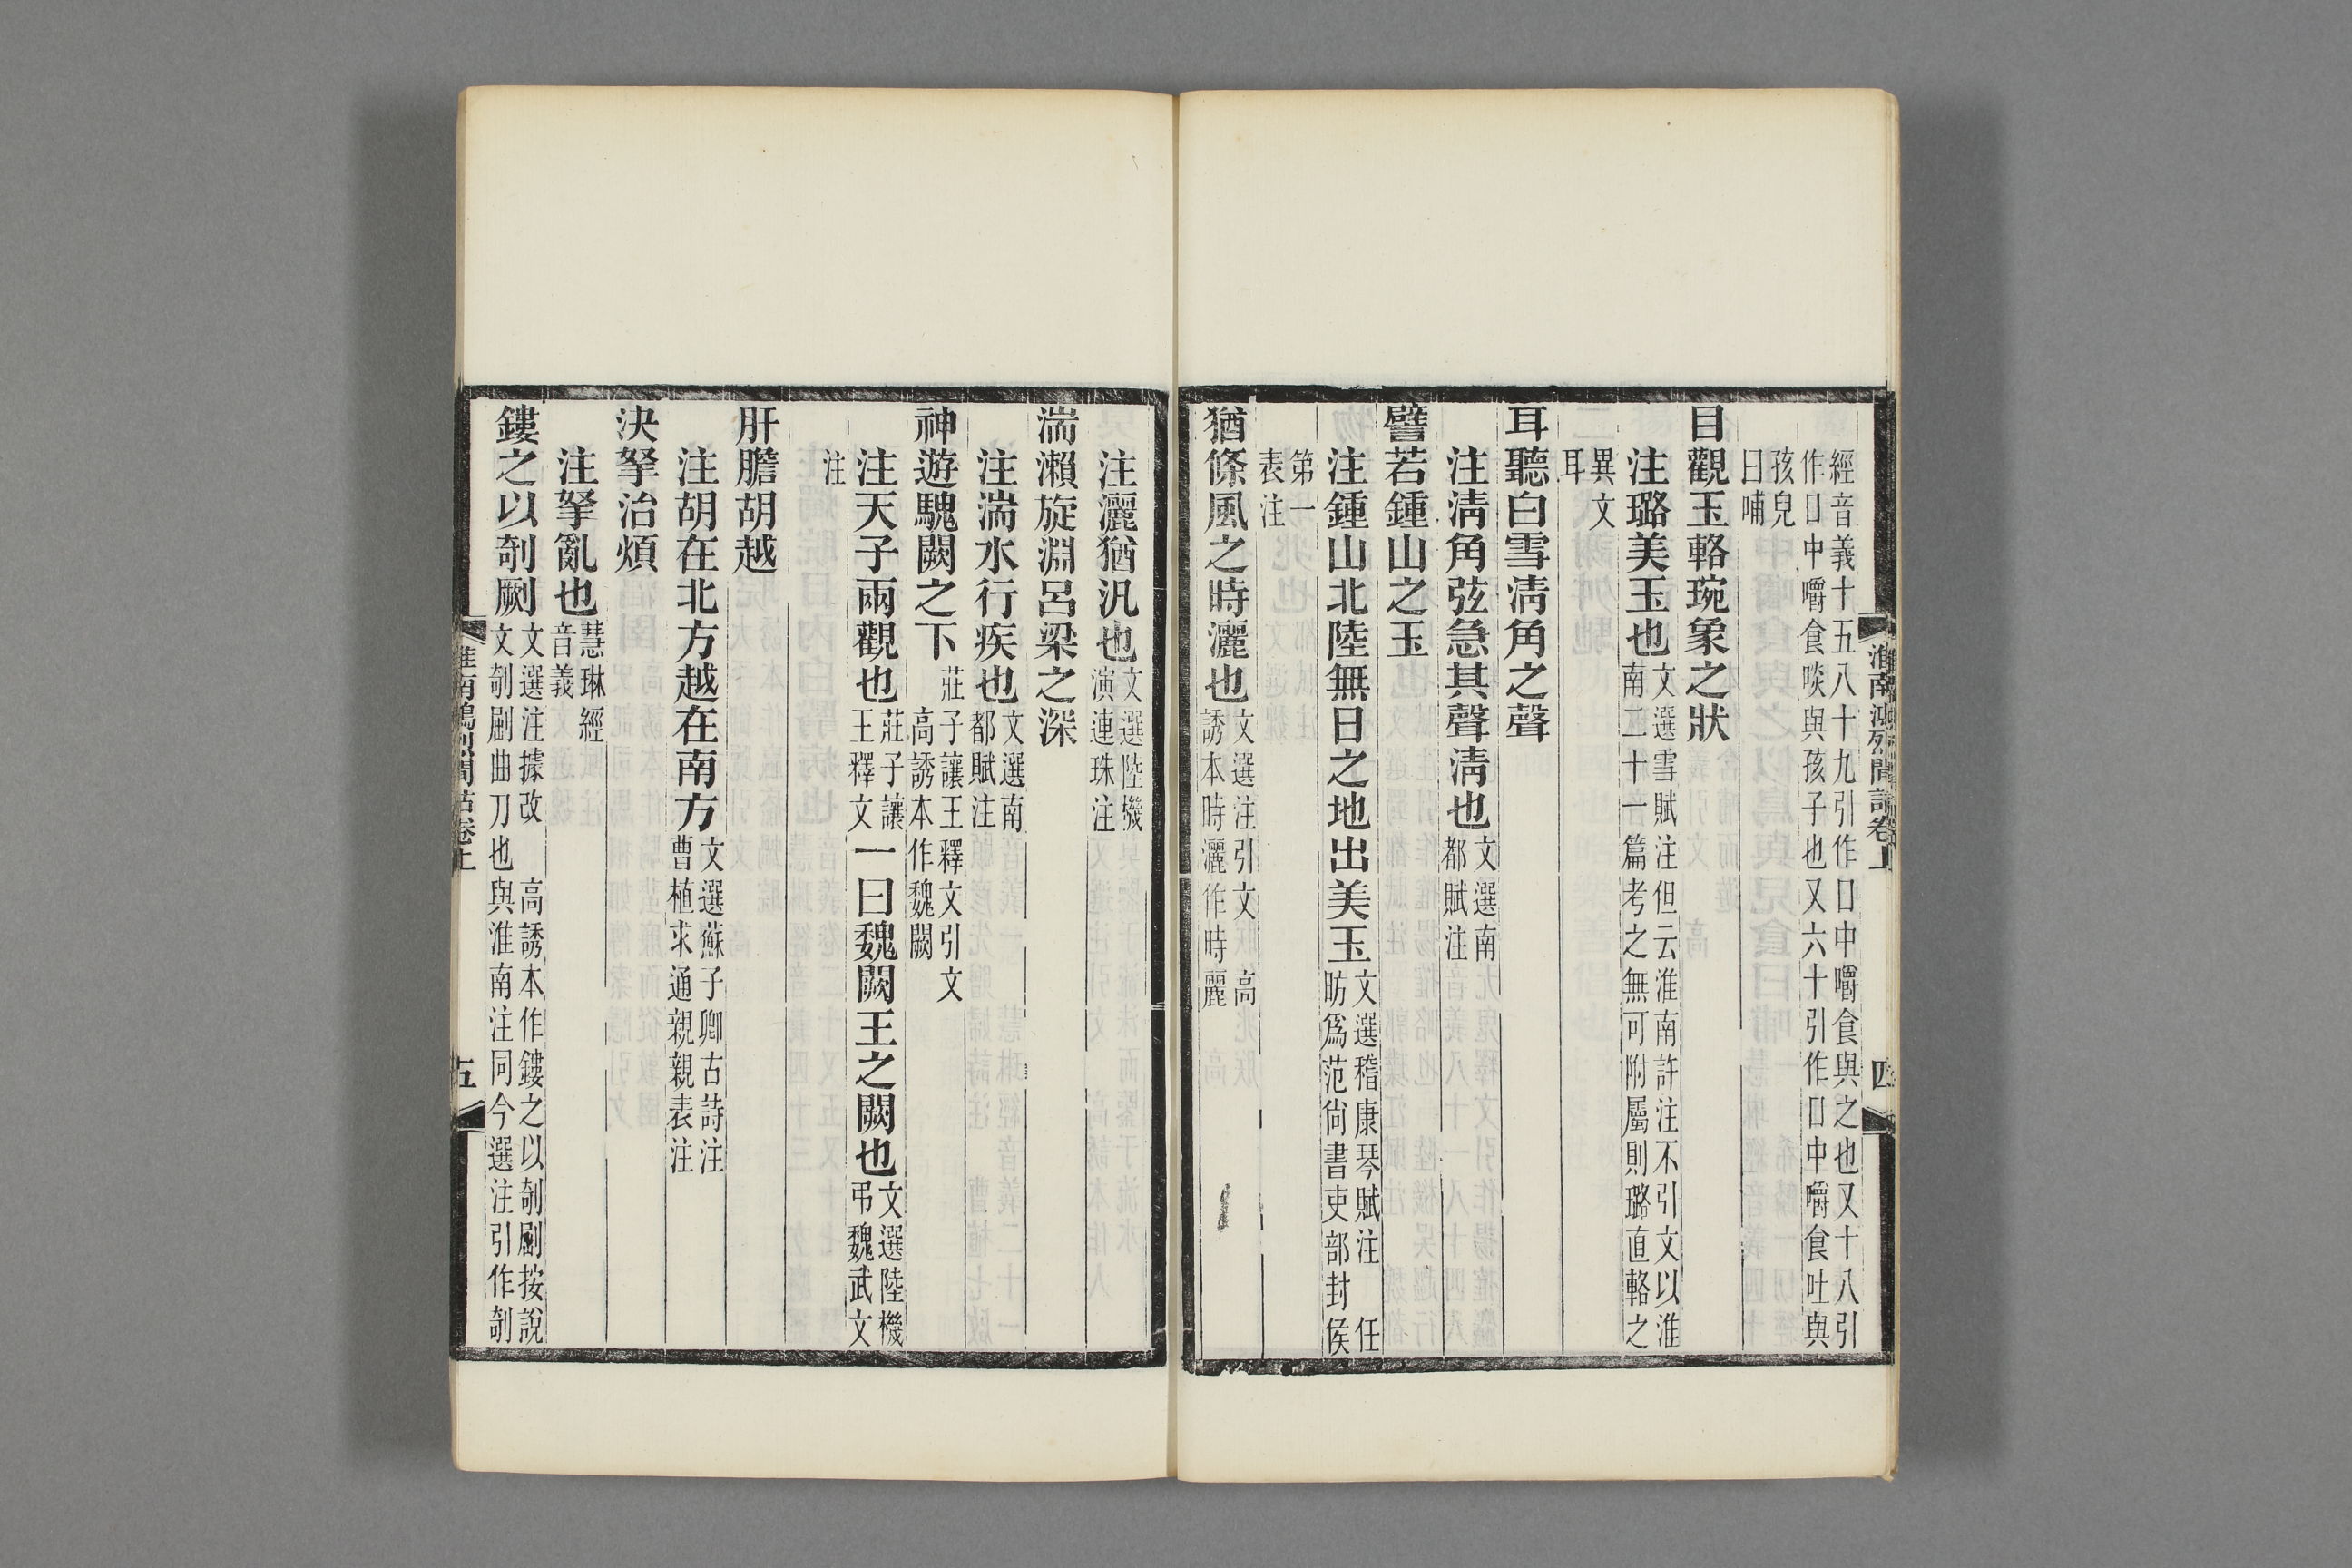 經音義十五八十九引作口中嚼食與之也又十八引
作口中嚼食啖與孩子也又六十引作口中嚼食吐與
孩兒
曰哺
目觀玉輅琬象之狀
注璐美玉也文選雪賦注但云淮南許注不引文以淮
南二十一篇考之無可附屬則璐直輅之
異文
耳
耳聽白雪淸角之聲
注淸角弦急其聲淸也文選南
都賦注
譬若鍾山之玉
注鍾山北陸無日之地出美玉文選嵇康琴賦注 任
昉爲范尙書吏部封侯
第一
表注
猶條風之時灑也文選注引文 高
誘本時灑作時麗
淮南鴻烈閒詁卷上
四
注灑猶汎也文選陸機
演連珠注
湍瀨旋淵呂梁之深
注湍水行疾也文選南
都賦注
神遊魏闕之下莊子讓王釋文引文
高誘本作魏闕
注天子兩觀也莊子讓
王釋文一曰魏闕王之闕也文選陸機
弔魏武文
注
肝膽胡越
注胡在北方越在南方文選蘇子卿古詩注
曹植求通親親表注
決挐治煩
注挐亂也慧琳經
音義
鏤之以剞劂文選注據改 高誘本作鏤之以剞劂按說
文剞劂曲刀也與淮南注同今選注引作剞
淮南鴻烈閒詁卷上
五